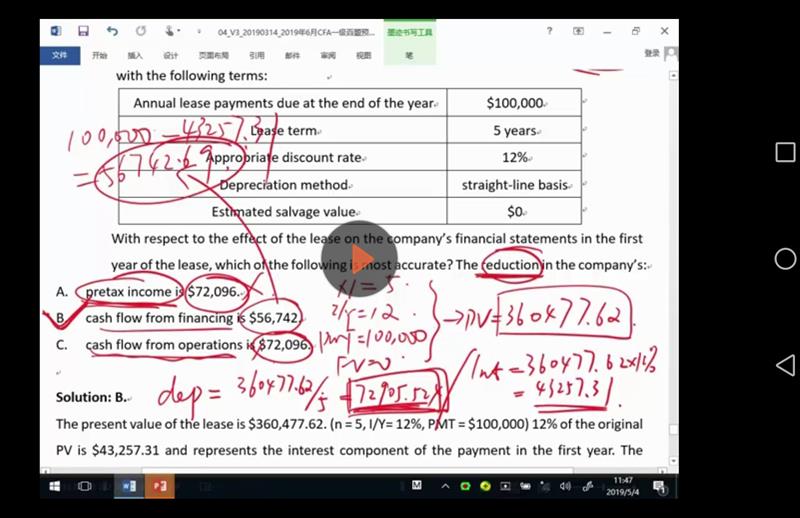 04_V3_20190314_2019年6月CFA一级百题预...
墨迹书写工具
文件 开始 插入 设计 页面布局 引用 邮件 审阅 视图 笔 登录
with the following terms:
Annual lease payments due at the end of the year $100,000
Lease term 5 years
Appropriate discount rate 12%
Depreciation method straight-line basis
Estimated salvage value $0
100,000 - 43257.31
= 56742.69
With respect to the effect of the lease on the company's financial statements in the first
year of the lease, which of the following is most accurate? The reduction in the company's:
A. pretax income is $72,096.
B. cash flow from financing is $56,742.
C. cash flow from operations is $72,096.
N = 5
I/Y = 12
PMT = 100,000
FV = 0
→ PV = 360477.62
Int = 360477.62 x 12%
= 43257.31
dep = 360477.62/5 =
Solution: B.
The present value of the lease is $360,477.62. (n = 5, I/Y= 12%, PMT = $100,000) 12% of the original
PV is $43,257.31 and represents the interest component of the payment in the first year. The
11:47
2019/5/4